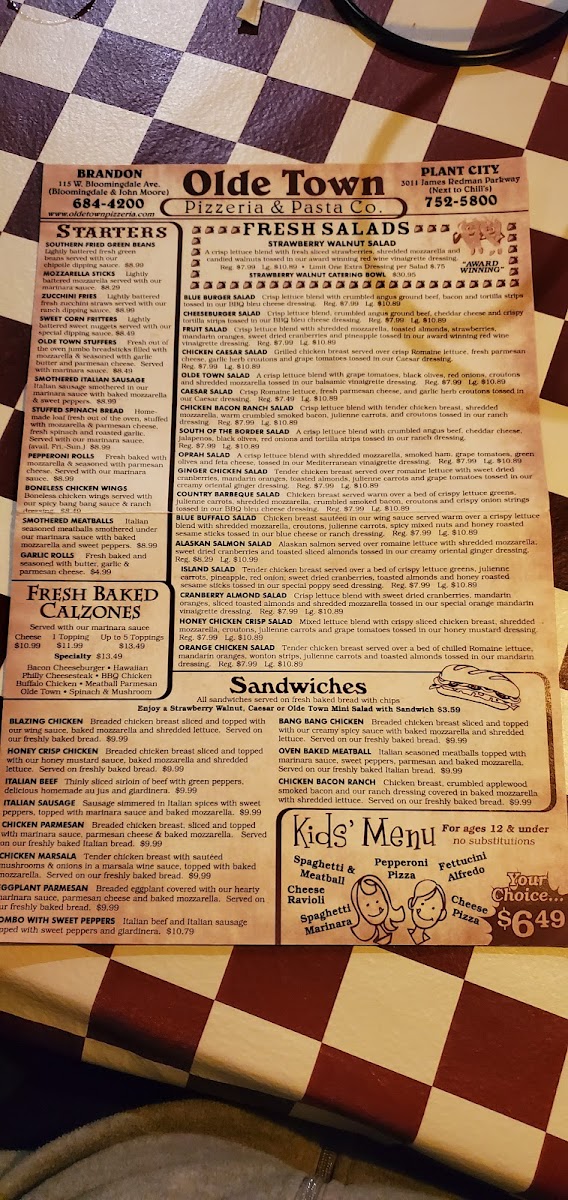 BRANDON
115 W. Bloomingdale Ave.
(Bloomingdale & John Moore)
684-4200
www.oldetownpizzeria.com
Olde Town
Pizzeria & Pasta Co.
PLANT CITY
3011 James Redman Parkway
(Next to Chili's)
752-5800
STARTERS
SOUTHERN FRIED GREEN BEANS
Lightly battered fresh green
beans served with our
chipotle dipping sauce. $8.99
MOZZARELLA STICKS Lightly
battered mozzarella served with our
marinara sauce. $8.29
ZUCCHINI FRIES Lightly battered
fresh zucchini strips served with our
ranch dipping sauce. $8.99
SWEET CORN FRITTERS Lightly
battered sweet nuggets served with our
special dipping sauce. $8.49
OLDE TOWN STUFFERS Fresh out of
the oven jumbo breadsticks filled with
mozzarella & seasoned with garlic
butter and parmesan cheese. Served
with marinara sauce. $8.49
SMOTHERED ITALIAN SAUSAGE
Italian sausage smothered in our
marinara sauce with baked mozzarella
& sweet peppers. $8.99
STUFFED SPINACH BREAD Home-
made loaf fresh out of the oven, stuffed
with mozzarella & parmesan cheese,
fresh spinach and roasted garlic.
Served with our marinara sauce.
(avail. Fri.-Sun.) $8.99
PEPPERONI ROLLS Fresh baked with
mozzarella & seasoned with parmesan
cheese. Served with our marinara
sauce. $8.99
BONELESS CHICKEN WINGS
Boneless chicken wings served with
our spicy bang bang sauce & ranch
dressing.
SMOTHERED MEATBALLS Italian
seasoned meatballs smothered under
our marinara sauce with baked
mozzarella and sweet peppers. $8.99
GARLIC ROLLS Fresh baked and
seasoned with butter, garlic &
parmesan cheese. $4.99
FRESH BAKED
CALZONES
Served with our marinara sauce
Cheese 1 Topping Up to 5 Toppings
$10.99 $11.99 $13.49
Specialty $13.49
Bacon Cheeseburger • Hawaiian
Philly Cheesesteak • BBQ Chicken
Buffalo Chicken • Meatball Parmesan
Olde Town • Spinach & Mushroom
FRESH SALADS
STRAWBERRY WALNUT SALAD
A crisp lettuce blend with fresh sliced strawberries, shredded mozzarella and
candied walnuts tossed in our award winning red wine vinaigrette dressing.
Reg. $7.99 Lg. $10.89 • Limit One Extra Dressing per Salad $.75
STRAWBERRY WALNUT CATERING BOWL $30.95
"AWARD
WINNING"
BLUE BURGER SALAD Crisp lettuce blend with crumbled angus ground beef, bacon and tortilla strips
tossed in our BBQ bleu cheese dressing. Reg. $7.99 Lg. $10.89
CHEESEBURGER SALAD Crisp lettuce blend, crumbled angus ground beef, cheddar cheese and crispy
tortilla strips tossed in our BBQ bleu cheese dressing. Reg. $7.99 Lg. $10.89
FRUIT SALAD Crisp lettuce blend with shredded mozzarella, toasted almonds, strawberries,
mandarin oranges, sweet dried cranberries and pineapple tossed in our award winning red wine
vinaigrette dressing. Reg. $7.99 Lg. $10.89
CHICKEN CAESAR SALAD Grilled chicken breast served over crisp Romaine lettuce, fresh parmesan
cheese, garlic herb croutons and grape tomatoes tossed in our Caesar dressing.
Reg. $7.99 Lg. $10.89
OLDE TOWN SALAD A crisp lettuce blend with grape tomatoes, black olives, red onions, croutons
and shredded mozzarella tossed in our balsamic vinaigrette dressing. Reg. $7.99 Lg. $10.89
CAESAR SALAD Crisp Romaine lettuce, fresh parmesan cheese, and garlic herb croutons tossed in
our Caesar dressing. Reg. $7.49 Lg. $10.89
CHICKEN BACON RANCH SALAD Crisp lettuce blend with tender chicken breast, shredded
mozzarella, warm crumbled smoked bacon, julienne carrots, and croutons tossed in our ranch
dressing. Reg. $7.99 Lg. $10.89
SOUTH OF THE BORDER SALAD A crisp lettuce blend with crumbled angus beef, cheddar cheese,
jalapenos, black olives, red onions and tortilla strips tossed in our ranch dressing.
Reg. $7.99 Lg. $10.89
OPRAH SALAD A crisp lettuce blend with shredded mozzarella, smoked ham, grape tomatoes, green
olives and feta cheese, tossed in our Mediterranean vinaigrette dressing. Reg. $7.99 Lg. $10.89
GINGER CHICKEN SALAD Tender chicken breast served over romaine lettuce with sweet dried
cranberries, mandarin oranges, toasted almonds, julienne carrots and grape tomatoes tossed in our
creamy oriental ginger dressing. Reg. $7.99 Lg. $10.89
COUNTRY BARBEQUE SALAD Chicken breast served warm over a bed of crispy lettuce greens,
julienne carrots, shredded mozzarella, crumbled smoked bacon, croutons and crispy onion strings
tossed in our BBQ bleu cheese dressing. Reg. $7.99 Lg. $10.89
BLUE BUFFALO SALAD Chicken breast sautéed in our wing sauce served warm over a crispy lettuce
blend with shredded mozzarella, croutons, julienne carrots, spicy mixed nuts and honey roasted
sesame sticks tossed in our blue cheese or ranch dressing. Reg. $7.99 Lg. $10.89
ALASKAN SALMON SALAD Alaskan salmon served over romaine lettuce with shredded mozzarella,
sweet dried cranberries and toasted sliced almonds tossed in our creamy oriental ginger dressing.
Reg. $8.29 Lg. $10.99
ISLAND SALAD Tender chicken breast served over a bed of crispy lettuce greens, julienne
carrots, pineapple, red onion, sweet dried cranberries, toasted almonds and honey roasted
sesame sticks tossed in our special poppy seed dressing. Reg. $7.99 Lg. $10.89
CRANBERRY ALMOND SALAD Crisp lettuce blend with sweet dried cranberries, mandarin
oranges, sliced toasted almonds and shredded mozzarella tossed in our special orange mandarin
vinaigrette dressing. Reg. $7.99 Lg. $10.89
HONEY CHICKEN CRISP SALAD Mixed lettuce blend with crispy sliced chicken breast, shredded
mozzarella, croutons, julienne carrots and grape tomatoes tossed in our honey mustard dressing.
Reg. $7.99 Lg. $10.89
ORANGE CHICKEN SALAD Tender chicken breast served over a bed of chilled Romaine lettuce,
mandarin oranges, wonton strips, julienne carrots and toasted almonds tossed in our mandarin
dressing. Reg. $7.99 Lg. $10.89
Sandwiches
All sandwiches served on fresh baked bread with chips
Enjoy a Strawberry Walnut, Caesar or Olde Town Mini Salad with Sandwich $3.59
BLAZING CHICKEN Breaded chicken breast sliced and topped with
our wing sauce, baked mozzarella and shredded lettuce. Served on
our freshly baked bread. $9.99
HONEY CRISP CHICKEN Breaded chicken breast sliced and topped
with our honey mustard sauce, baked mozzarella and shredded
lettuce. Served on freshly baked bread. $9.99
ITALIAN BEEF Thinly sliced sirloin of beef with green peppers,
delicious homemade au jus and giardinera. $9.99
ITALIAN SAUSAGE Sausage simmered in Italian spices with sweet
peppers, topped with marinara sauce and baked mozzarella. $9.99
CHICKEN PARMESAN Breaded chicken breast, sliced and topped
with marinara sauce, parmesan cheese & baked mozzarella. Served
on our freshly baked Italian bread. $9.99
CHICKEN MARSALA Tender chicken breast with sautéed
mushrooms & onions in a marsala wine sauce, topped with baked
mozzarella. Served on our freshly baked bread. $9.99
EGGPLANT PARMESAN Breaded eggplant covered with our hearty
marinara sauce, parmesan cheese and baked mozzarella. Served on
our freshly baked bread. $9.99
OMBO WITH SWEET PEPPERS Italian beef and Italian sausage
pped with sweet peppers and giardinera. $10.79
BANG BANG CHICKEN Breaded chicken breast sliced and topped
with our creamy spicy sauce with baked mozzarella and shredded
lettuce. Served on our freshly baked bread. $9.99
OVEN BAKED MEATBALL Italian seasoned meatballs topped with
marinara sauce, sweet peppers, parmesan and baked mozzarella.
Served on our freshly baked Italian bread. $9.99
CHICKEN BACON RANCH Chicken breast, crumbled applewood
smoked bacon and our ranch dressing covered in baked mozzarella
with shredded lettuce. Served on our freshly baked bread. $9.99
Kids' Menu
For ages 12 & under
no substitutions
Spaghetti &
Meatball
Pepperoni
Pizza
Fettucini
Alfredo
Cheese
Ravioli
Spaghetti
Marinara
Cheese
Pizza
Your
Choice...
$6.49